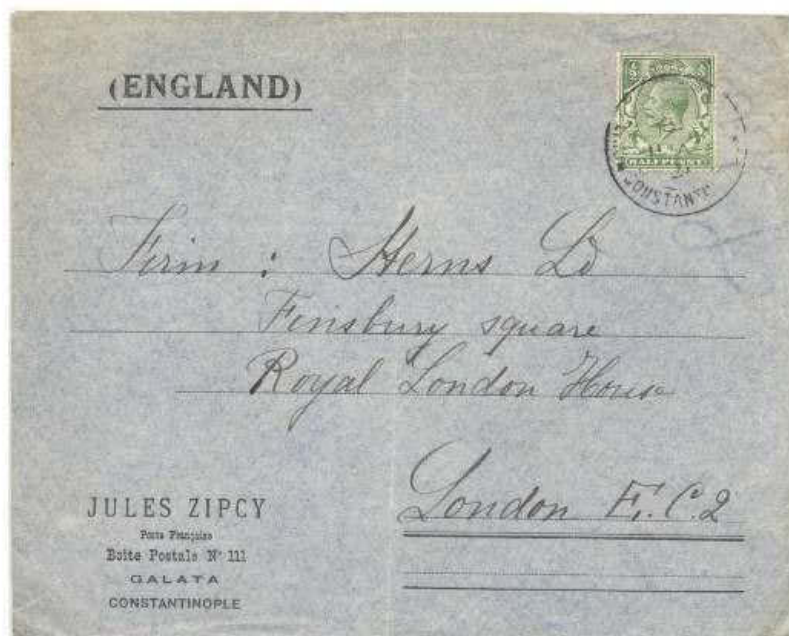 (ENGLAND)
HALFPENNY
CONSTANT
Firm : Sterns Ld
Finsbury square
Royal London House
London E.C.2
JULES ZIPCY
Poste Française
Boite Postale Nº 111
GALATA
CONSTANTINOPLE